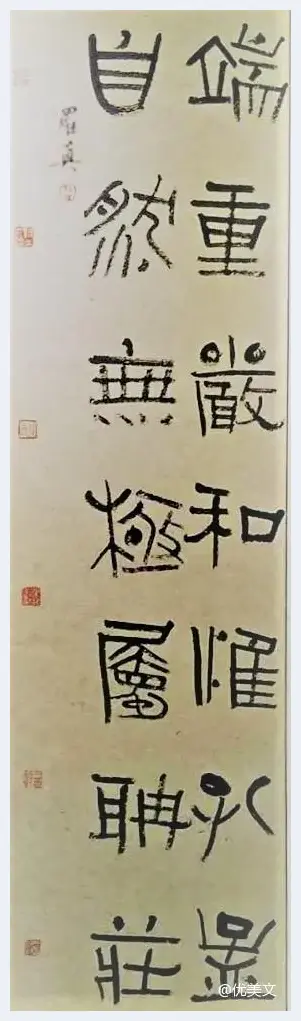 端重嚴和惟孔孟
自然無極屬聃莊
真
@优美文